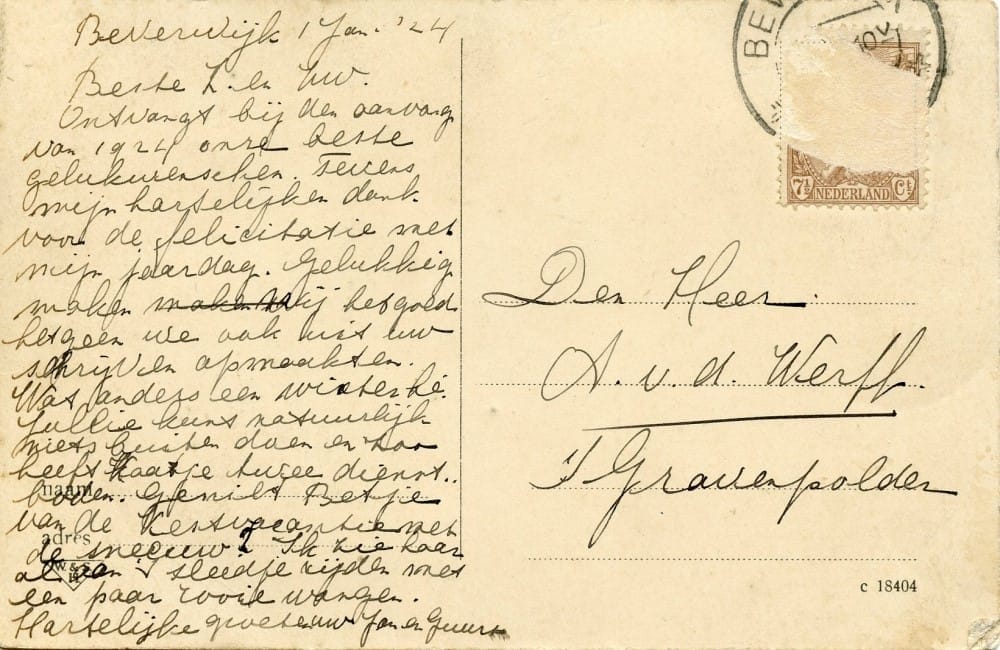 Beverwijk 1 Jan. '24
Beste L. en W.
Ontvangt bij den aanvang
van 1924 onze beste
gelukwenschen. Tevens
mijn hartelijken dank
voor de felicitatie met
mijn jaardag. Gelukkig
maken wij het goed
hetgeen we ook uit uw
schrijven opmaakten.
Wat anders een winter hè.
Jullie kunt natuurlijk
niets buiten doen en zoo
heeft Kaatje twee dienst-
boden. Geniet Betje
van de Kerstvacantie met
de sneeuw? Ik zie haar
al aan 't sleetje rijden met
een paar rooie wangen.
Hartelijke groeten uw Jan en Guurt
naam
adres
W. & S.
BEV
NOV
7½ NEDERLAND Ct
Den Heer
A. v. d. Werff.
's Gravenpolder
c 18404